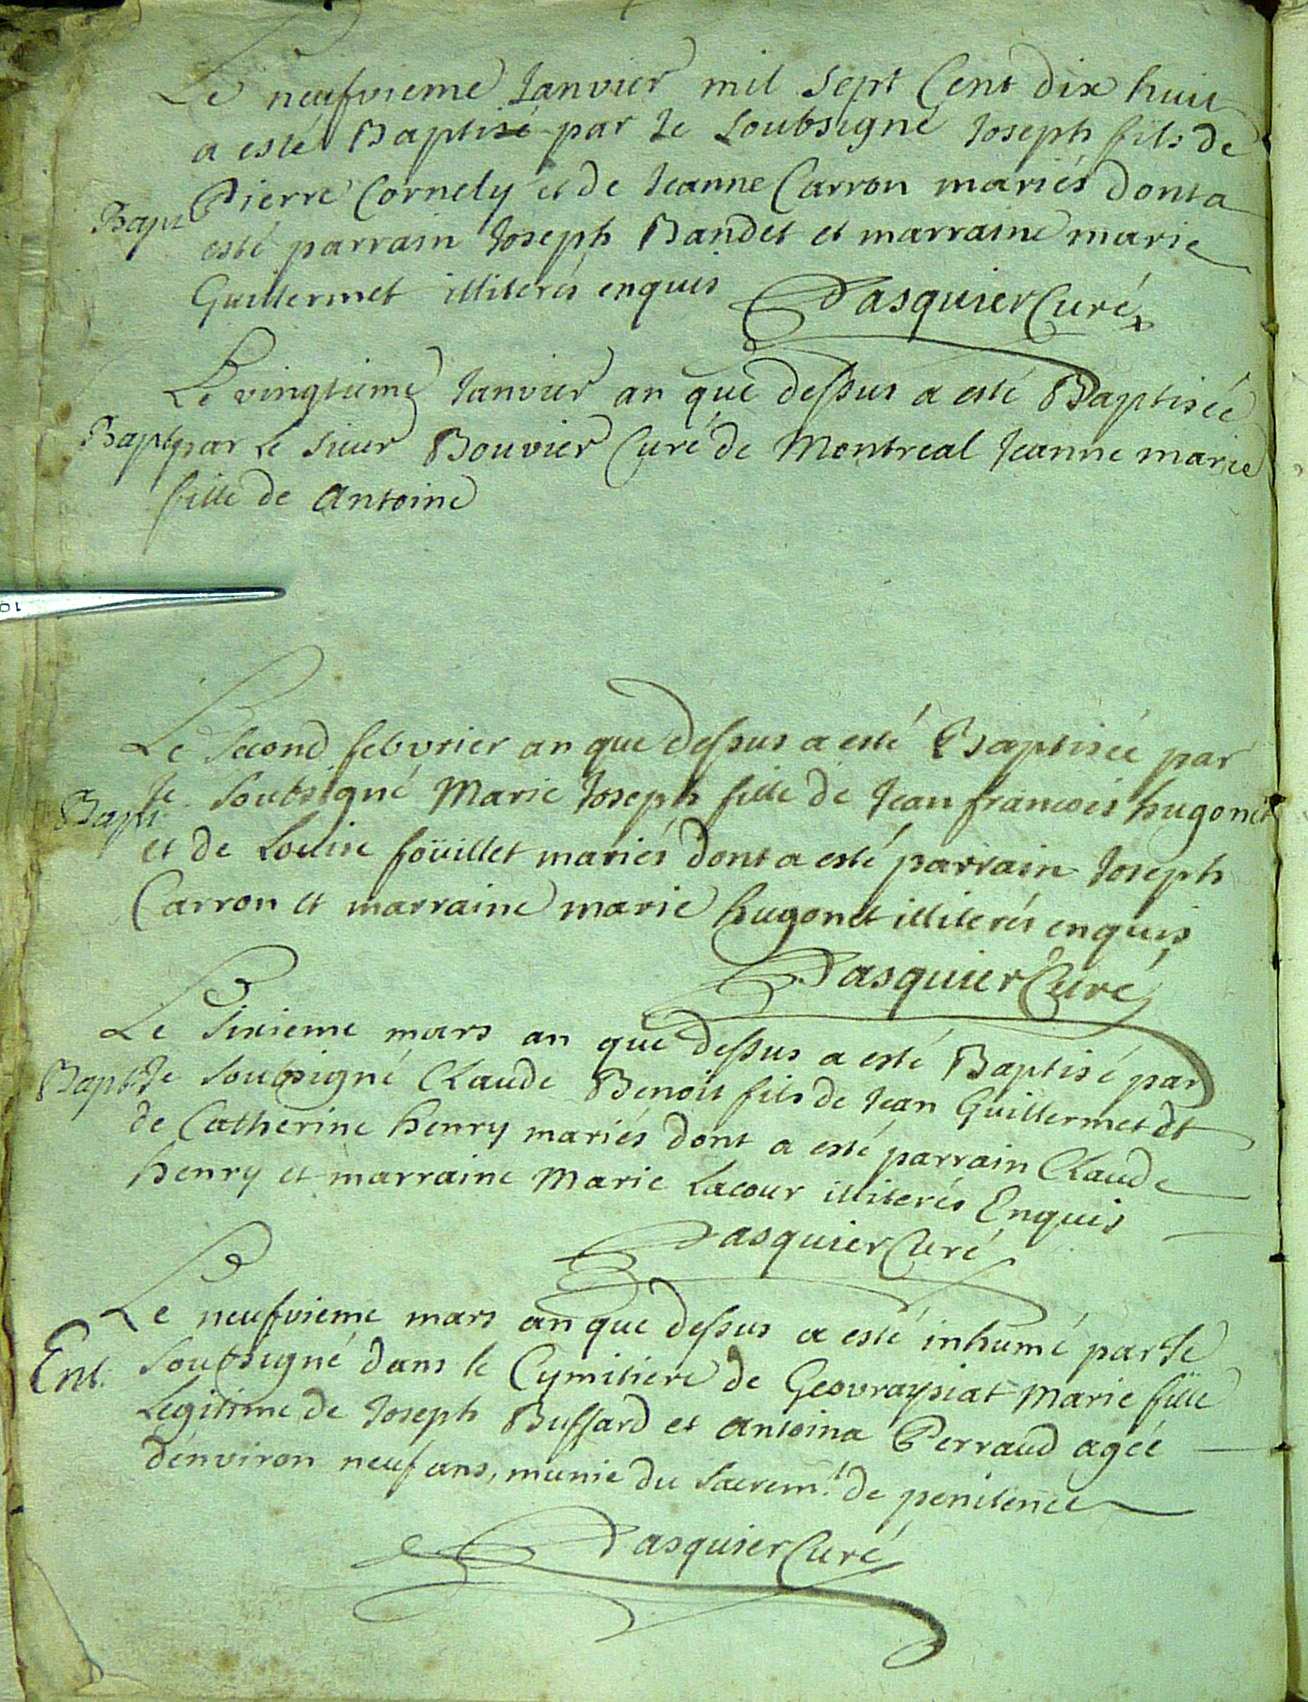 Le neufvieme Janvier mil sept Cent dix huit
a esté Baptisé par Je Soubsigné Joseph fils de
Bapt Pierre Cornely et de Jeanne Carron mariés dont a
esté parrain Joseph Bandet et marraine marie
Guillermet illiterés enquis Pasquier Curé
Le vingtieme Janvier an que dessus a esté Baptisée
Bapt par Le sieur Bouvier Curé de Montreal Jeanne marie
fille de Antoine
Le Second febvrier an que dessus a esté Baptisée par
Bapt Je Soubsigné Marie Joseph fille de Jean francois hugonet
et de Louise foüillet mariés dont a esté parrain Joseph
Carron et marraine marie hugonet illiterés enquis
Pasquier Curé
Le Sixieme mars an que dessus a esté Baptisé par
Bapt Je Soubsigné Claude Benoit fils de Jean Guillermet et
de Catherine henry mariés dont a esté parrain Claude
henry et marraine Marie Lacour illiterés Enquis
Pasquier Curé
Le neufvieme mars an que dessus a esté inhumé par Je
Ent. Soubsigné dans le Cymitiere de Geovraysiat Marie fille
Legitime de Joseph Buffard et Antoina Perraud agée
d'environ neuf ans, munie du sacrem.t de penitence
Pasquier Curé